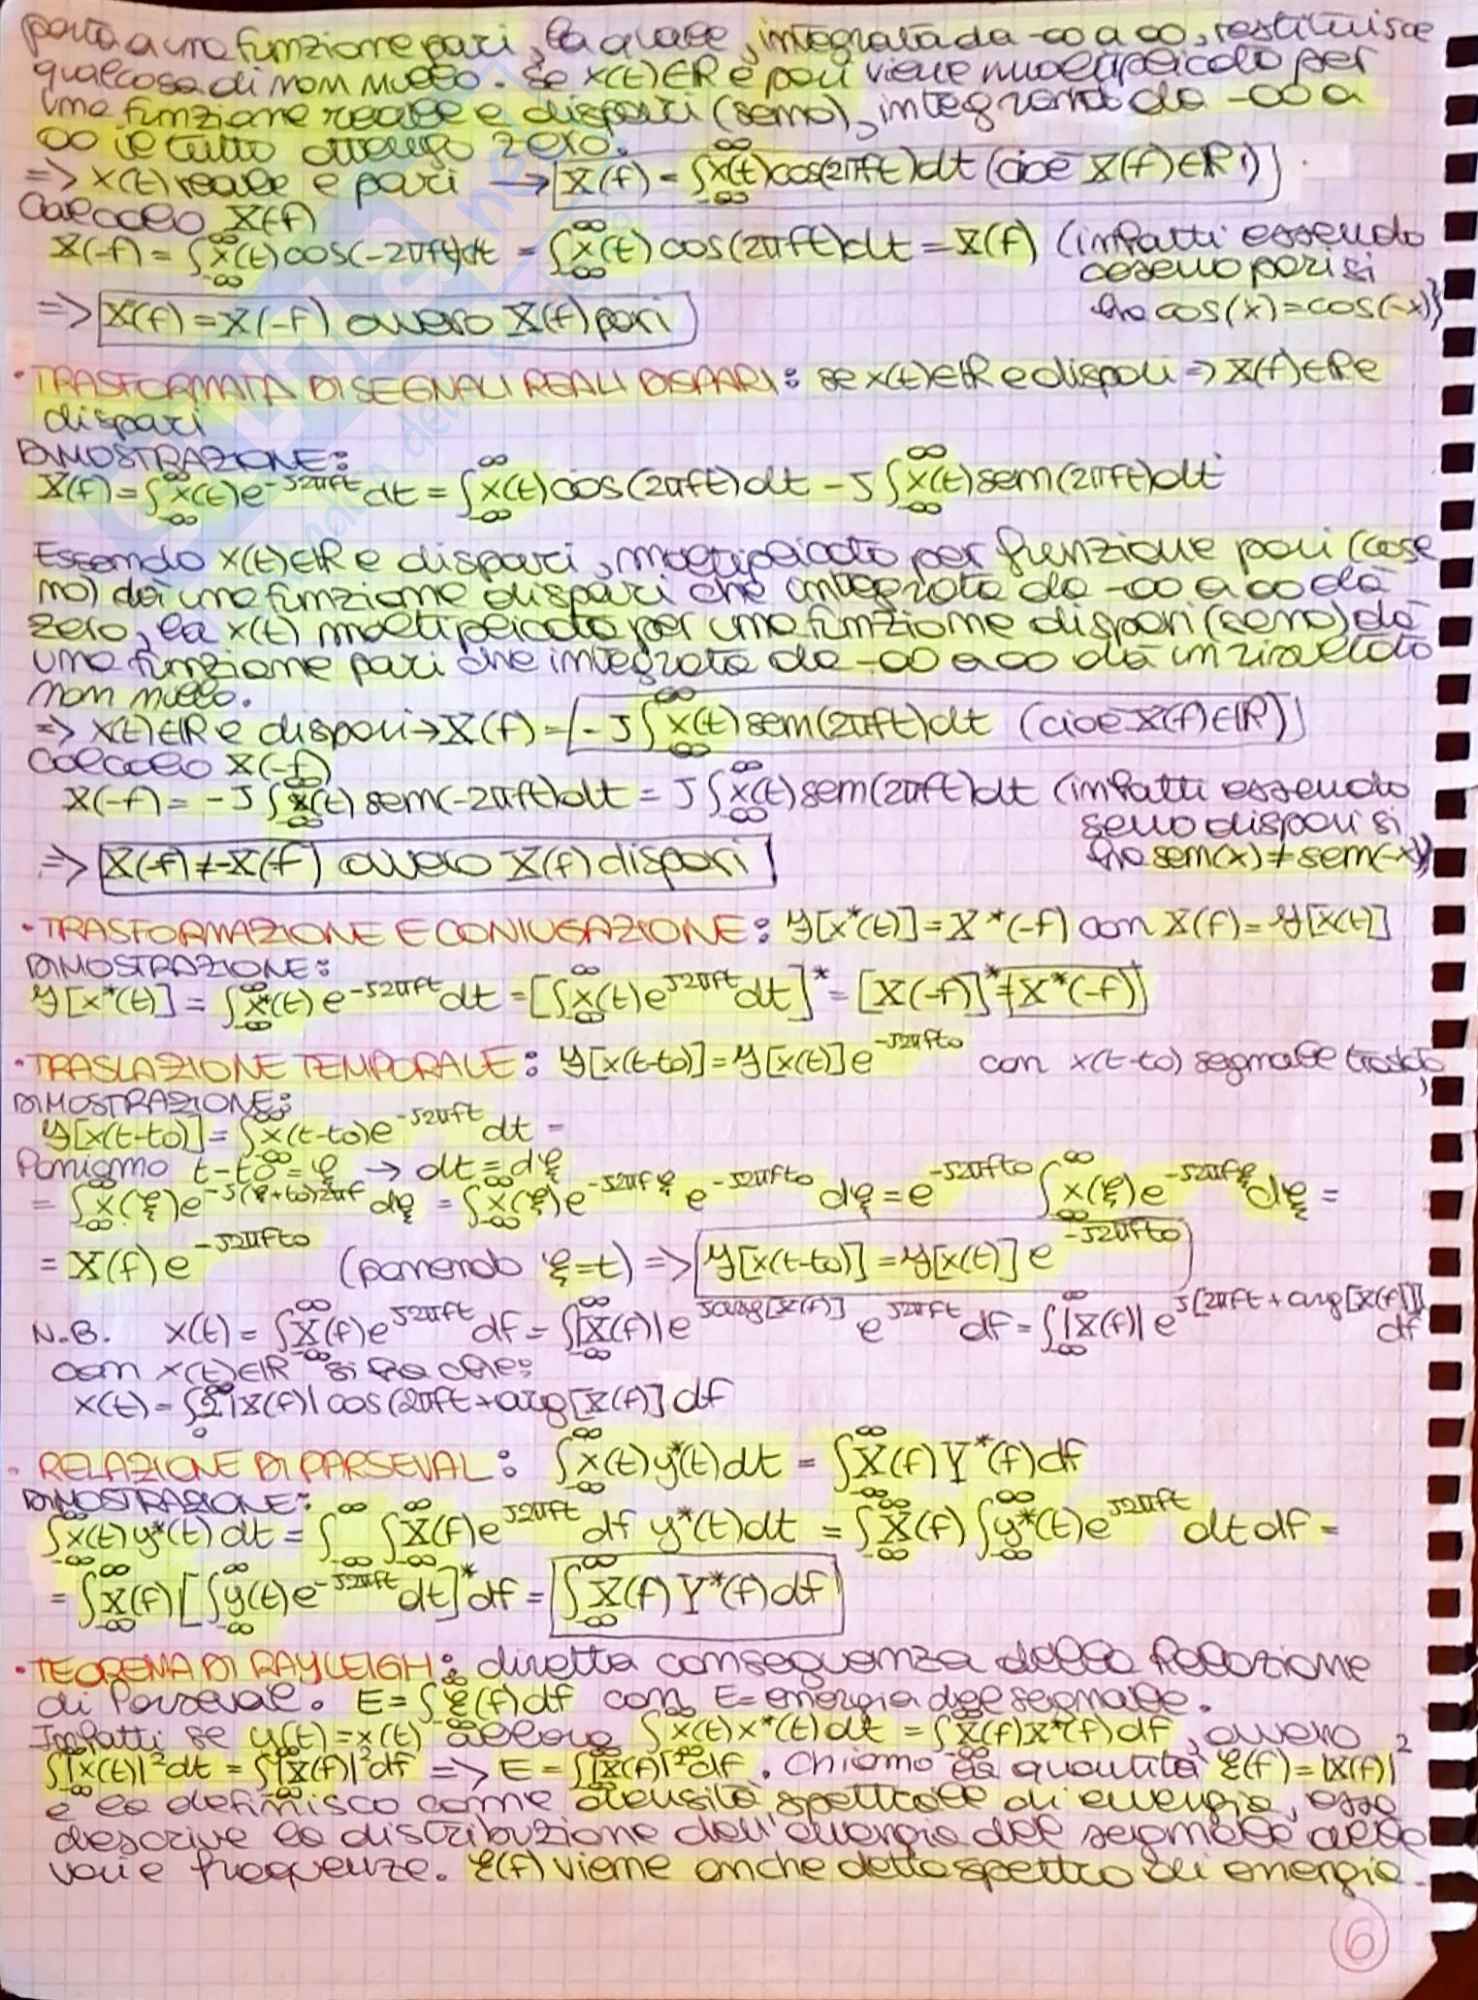 porta a una funzione pari, la quale, integrata da -∞ a ∞, restituisce
qualcosa di non nullo. Se x(t)∈ℝ e pari viene moltiplicato per
una funzione reale e dispari (seno), integrando da -∞ a
∞ il tutto ottengo zero.
=> x(t) reale e pari → X(f) = ∫_{-∞}^{∞} x(t)cos(2πft)dt (cioè X(f)∈ℝ!)
Calcolo X(-f)
X(-f) = ∫_{-∞}^{∞} x(t)cos(-2πft)dt = ∫_{-∞}^{∞} x(t)cos(2πft)dt = X(f) (infatti essendo
coseno pari si
ha cos(x)=cos(-x))
=> X(f) = X(-f) ovvero X(f) pari
• TRASFORMATA DI SEGNALI REALI DISPARI: se x(t)∈ℝ e dispari => X(f)∈ℝ e
dispari
DIMOSTRAZIONE:
X(f) = ∫_{-∞}^{∞} x(t)e^{-J2πft}dt = ∫_{-∞}^{∞} x(t)cos(2πft)dt - J∫_{-∞}^{∞} x(t)sen(2πft)dt
Essendo x(t)∈ℝ e dispari, moltiplicato per funzione pari (cose
no) dà una funzione dispari che integrata da -∞ a ∞ dà
zero, la x(t) moltiplicata per una funzione dispari (seno) dà
una funzione pari che integrata da -∞ a ∞ dà un risultato
non nullo.
=> x(t)∈ℝ e dispari → X(f) = -J∫_{-∞}^{∞} x(t)sen(2πft)dt (cioè X(f)∈ℝ)
Calcolo X(-f)
X(-f) = -J∫_{-∞}^{∞} x(t)sen(-2πft)dt = J∫_{-∞}^{∞} x(t)sen(2πft)dt (infatti essendo
seno dispari si
ha sen(x)≠sen(-x))
=> X(-f)≠-X(f) ovvero X(f) dispari
• TRASFORMAZIONE E CONIUGAZIONE: Y[x*(t)] = X*(-f) con X(f) = Y[x(t)]
DIMOSTRAZIONE:
Y[x*(t)] = ∫_{-∞}^{∞} x*(t)e^{-J2πft}dt = [∫_{-∞}^{∞} x(t)e^{J2πft}dt]* = [X(-f)]* = X*(-f)
• TRASLAZIONE TEMPORALE: Y[x(t-to)] = Y[x(t)]e^{-J2πfto} con x(t-to) segnale traslato
DIMOSTRAZIONE:
Y[x(t-to)] = ∫_{-∞}^{∞} x(t-to)e^{-J2πft}dt =
Poniamo t-to = ξ → dt = dξ
= ∫_{-∞}^{∞} x(ξ)e^{-J(ξ+to)2πf}dξ = ∫_{-∞}^{∞} x(ξ)e^{-J2πfξ} e^{-J2πfto}dξ = e^{-J2πfto} ∫_{-∞}^{∞} x(ξ)e^{-J2πfξ}dξ =
= X(f)e^{-J2πfto} (ponendo ξ=t) => Y[x(t-to)] = Y[x(t)]e^{-J2πfto}
N.B. x(t) = ∫_{-∞}^{∞} X(f)e^{J2πft}df = ∫_{-∞}^{∞} |X(f)|e^{Jarg[X(f)]} e^{J2πft}df = ∫_{-∞}^{∞} |X(f)|e^{J[2πft+arg[X(f)]]}df
con x(t)∈ℝ si ha che:
x(t) = ∫_{0}^{∞} 2|X(f)|cos(2πft+arg[X(f)]df
• RELAZIONE DI PARSEVAL: ∫_{-∞}^{∞} x(t)y*(t)dt = ∫_{-∞}^{∞} X(f)Y*(f)df
DIMOSTRAZIONE:
∫_{-∞}^{∞} x(t)y*(t)dt = ∫_{-∞}^{∞} ∫_{-∞}^{∞} X(f)e^{J2πft}df y*(t)dt = ∫_{-∞}^{∞} X(f)∫_{-∞}^{∞} y*(t)e^{J2πft}dtdf =
= ∫_{-∞}^{∞} X(f)[∫_{-∞}^{∞} y(t)e^{-J2πft}dt]*df = ∫_{-∞}^{∞} X(f)Y*(f)df
• TEOREMA DI RAYLEIGH: diretta conseguenza della Relazione
di Parseval. E = ∫_{-∞}^{∞} ξ(f)df con E = energia del segnale.
Infatti se y(t) = x(t) allora ∫_{-∞}^{∞} x(t)x*(t)dt = ∫_{-∞}^{∞} X(f)X*(f)df, ovvero
∫_{-∞}^{∞} |x(t)|²dt = ∫_{-∞}^{∞} |X(f)|²df => E = ∫_{-∞}^{∞} |X(f)|²df. Chiamo la quantità ξ(f) = |X(f)|²
e la definisco come densità spettrale di energia, essa
descrive la distribuzione dell'energia del segnale alle
varie frequenze. ξ(f) viene anche detta spettro di energia.
6